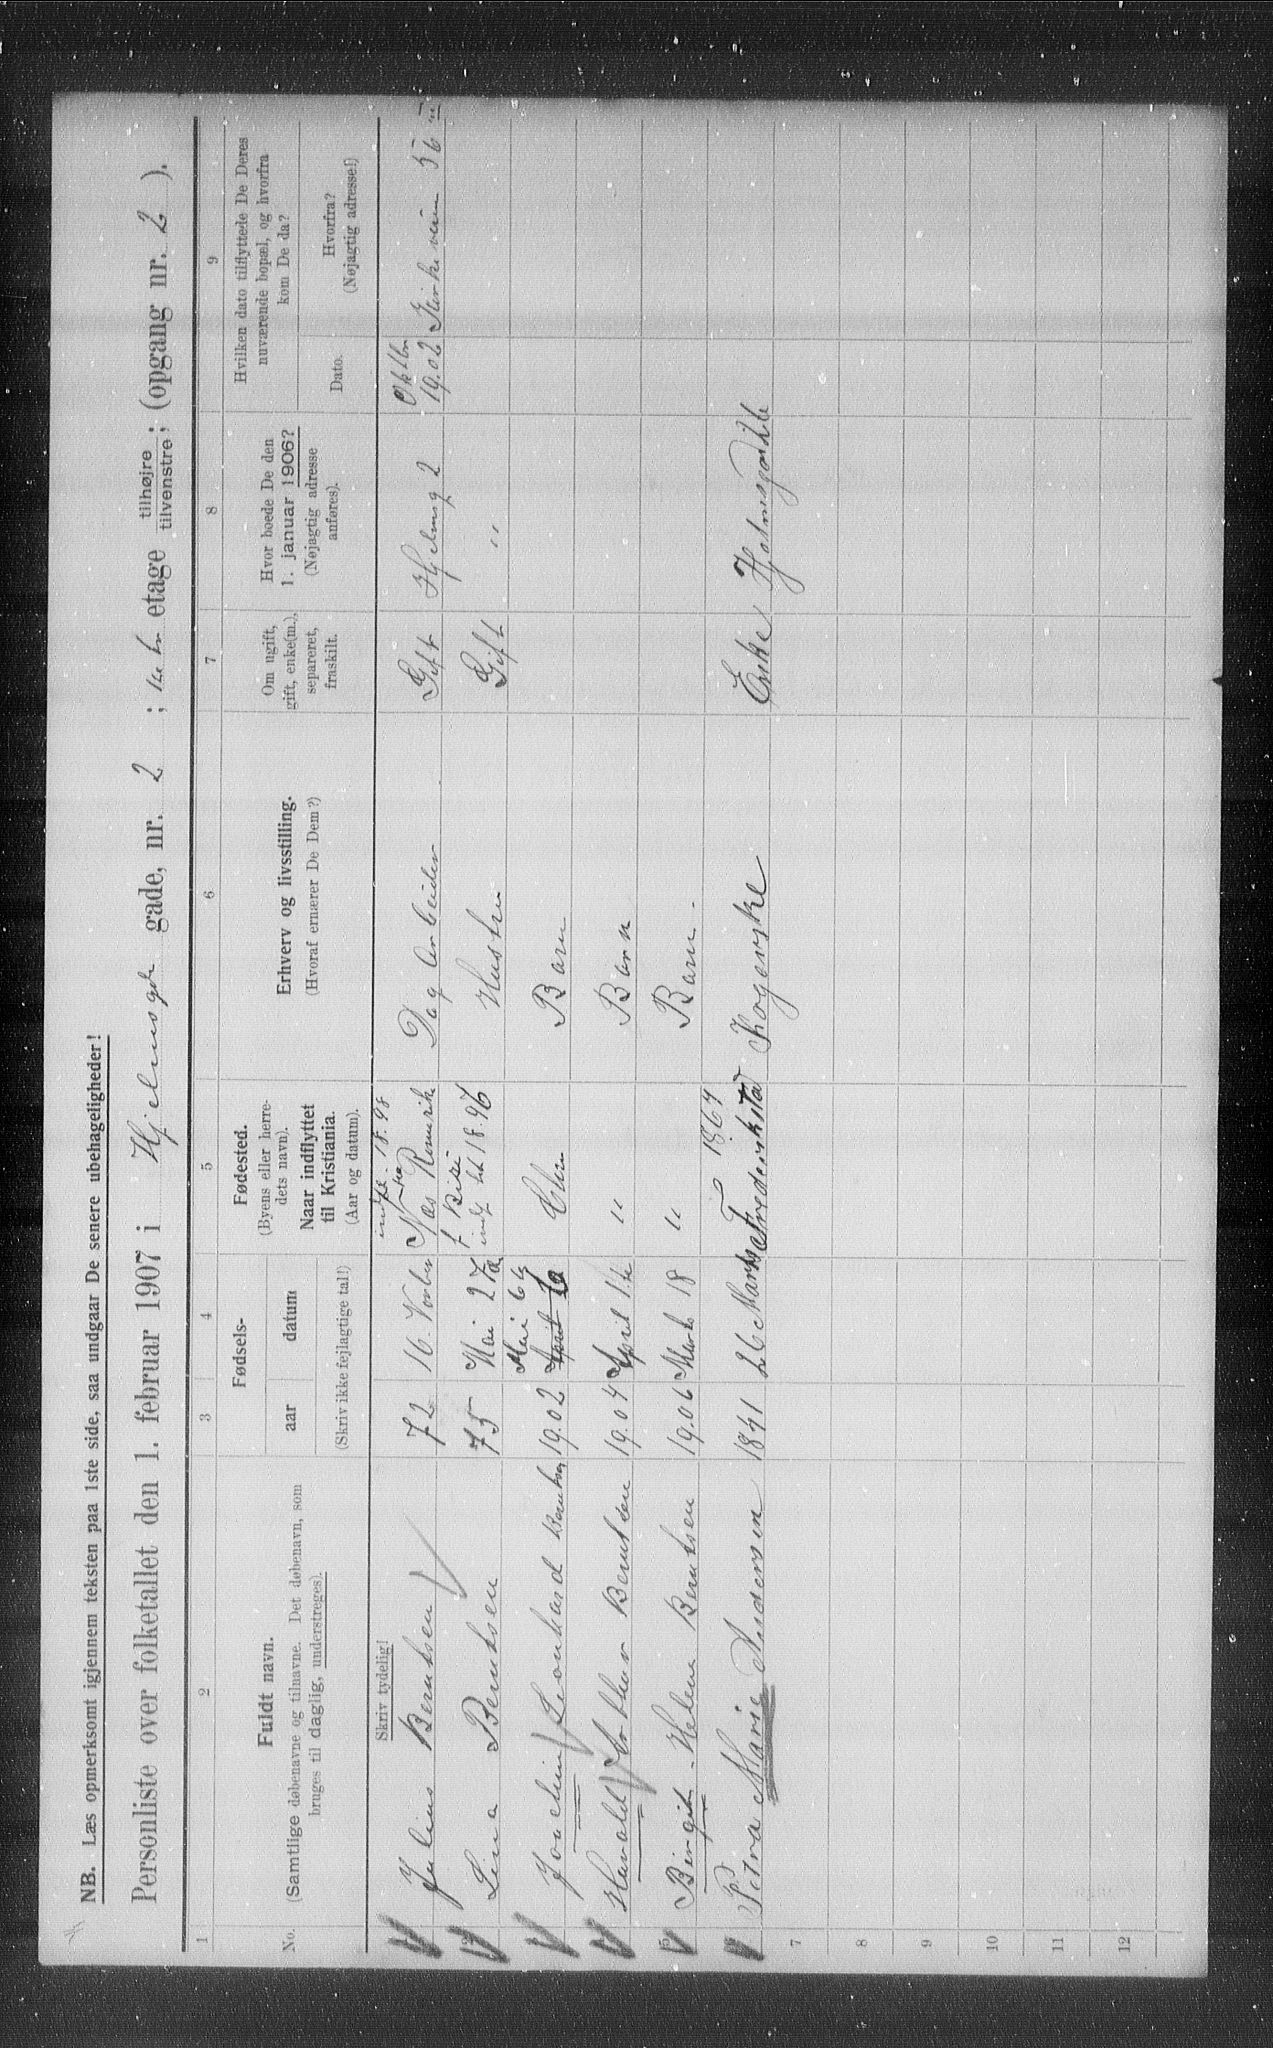 NB. Læs opmerksomt igjennem teksten paa 1ste side, saa undgaar De senere ubehageligheder!
Personliste over folketallet den 1. februar 1907 i Hjelmsgde gade, nr. 2 ; 1ste etage tilhøjre tilvenstre; (opgang nr. 2 ).
1 2 3 4 5 6 7 8 9
No. Fuldt navn. (Samtlige døbenavne og tilnavne. Det døbenavn, som bruges til daglig, understreges).
Fødsels- aar datum (Skriv ikke fejlagtige tal!)
Fødested. (Byens eller herredets navn). Naar indflyttet til Kristiania. (Aar og datum).
Erhverv og livsstilling. (Hvoraf ernærer De Dem?)
Om ugift, gift, enke(m.), separeret, fraskilt.
Hvor boede De den 1. januar 1906? (Nøjagtig adresse anføres).
Hvilken dato tilflyttede De Deres nuværende bopæl, og hvorfra kom De da?
Dato. Hvorfra? (Nøjagtig adresse!)
Skriv tydelig!
indfl. 18.98
Julius Berntsen 72 16. Novbr Næs Romerike Dag Arbeider Gift Hjelmsg 2 Oktbr 19.02 Kirkeveien 56
Lina Berntsen 75 Mai 27 indf til 18.96 Hustru Gift "
Joachim Leonhard Berntsen 19.02 April Mai 6 Chra Barn
Harald Arthur Berntsen 19.04 April " Barn
5 Birgit Helene Berntsen 19.06 Marts 18 " Barn.
Petra Marie Andersen 1841 26 Marts Frederikstad 1864 Kogerske Enke Hjelmsgd
7
8
9
10
11
12